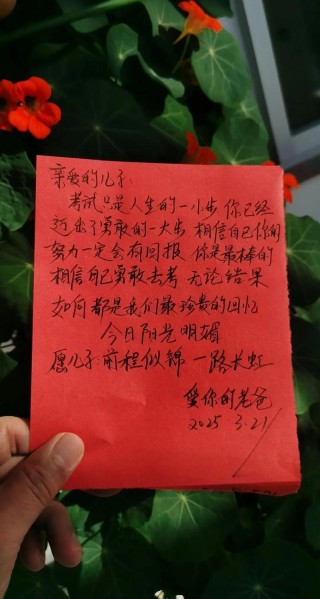 亲爱的儿子:
考试只是人生的一小步 你已经
迈出了勇敢的一大步 相信自己你的
努力一定会有回报 你是最棒的
相信自己勇敢去考 无论结果
如何都是我们最珍贵的回忆
今日阳光明媚
愿儿子前程似锦 一路长虹
爱你的老爸
2025 3.21